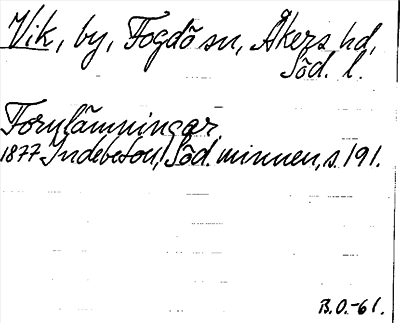 Vik, by, Fogdö sn, Åkers hd,
Söd. l.
Fornlämningar.
1877 Indebetou, Söd. minnen, s. 191.
B.O.-61.